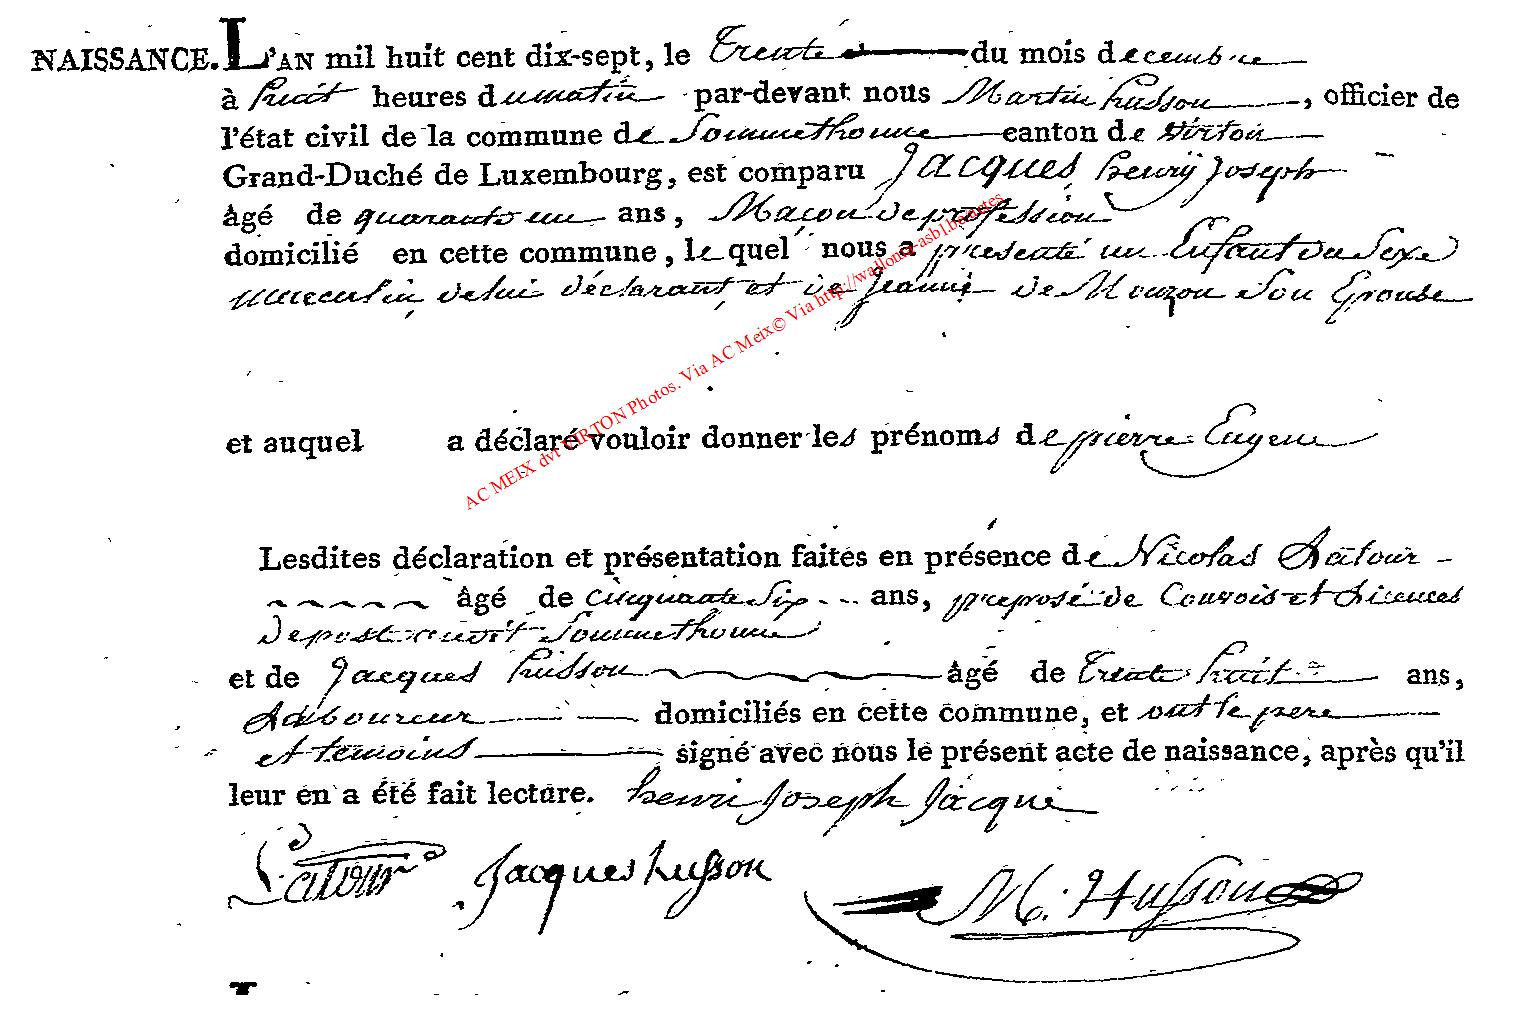 NAISSANCE. L'AN mil huit cent dix-sept, le Trente et du mois decembre
à huit heures du matin par-devant nous Martin husson, officier de
l'état civil de la commune de Sommethonne canton de virton
Grand-Duché de Luxembourg, est comparu Jacques henry Joseph
âgé de quarante un ans, Maçon de profession
domicilié en cette commune, le quel nous a présenté un Enfant du Sexe
masculin de lui déclarant et de Jeanne de Mouzon Son Epouse
et auquel a déclaré vouloir donner les prénoms de pierre Eugene
Lesdites déclaration et présentation faites en présence de Nicolas Latour
âgé de cinquante Six ans, préposé de Convois et Licences
de poste Sommethonne
et de Jacques husson âgé de Trente huit ans,
Laboureur domiciliés en cette commune, et ont le pere
et temoins signé avec nous le présent acte de naissance, après qu'il
leur en a été fait lecture. henri Joseph Jacque
Latour Jacques husson M. Husson
AC MEIX dvt VIRTON Photos. Via AC Meix© Via http://wallonia-asbl.be/actes